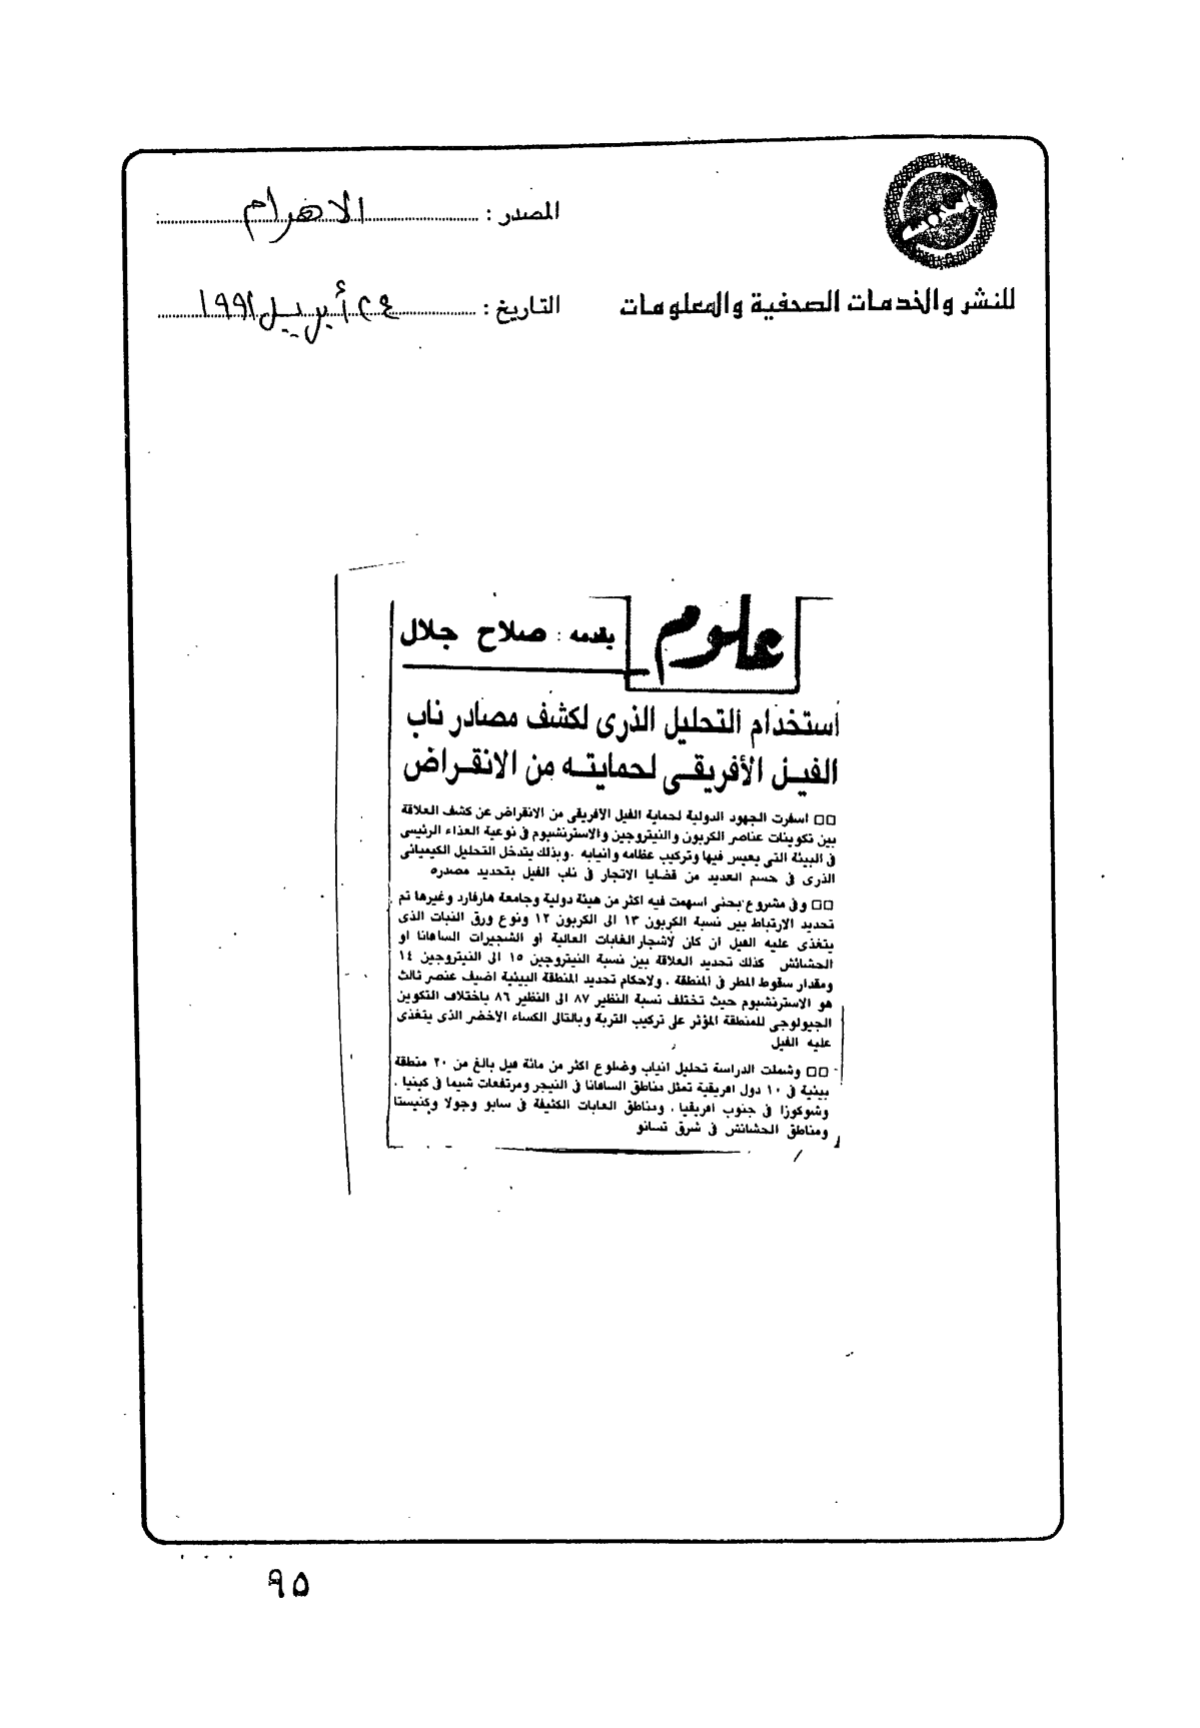 المصدر : الاهرام
للنشر والخدمات الصحفية والمعلومات
التاريخ : ٢٤ أبريل ١٩٩١
علوم
يقدمه : صلاح جلال
استخدام التحليل الذرى لكشف مصادر ناب
الفيل الأفريقى لحمايته من الانقراض
□□ اسفرت الجهود الدولية لحماية الفيل الافريقى من الانقراض عن كشف العلاقة
بين تكوينات عناصر الكربون والنيتروجين والاسترنشيوم فى نوعية الغذاء الرئيسى
فى البيئة التى يعيش فيها وتركيب عظامه وانيابه . وبذلك يتدخل التحليل الكيميائى
الذرى فى حسم العديد من قضايا الاتجار فى ناب الفيل بتحديد مصدره
□□ وفى مشروع بحثى اسهمت فيه اكثر من هيئة دولية وجامعة هارفارد وغيرها تم
تحديد الارتباط بين نسبة الكربون ١٣ الى الكربون ١٢ ونوع ورق النبات الذى
يتغذى عليه الفيل ان كان لاشجار الغابات العالية أو الشجيرات السافانا او
الحشائش كذلك تحديد العلاقة بين نسبة النيتروجين ١٥ الى النيتروجين ١٤
ومقدار سقوط المطر فى المنطقة . ولاحكام تحديد المنطقة البيئية اضيف عنصر ثالث
هو الاسترنشيوم حيث تختلف نسبة النظير ٨٧ الى النظير ٨٦ باختلاف التكوين
الجيولوجى للمنطقة المؤثر على تركيب التربة وبالتالى الكساء الاخضر الذى يتغذى
عليه الفيل
□□ وشملت الدراسة تحليل انياب وضلوع اكثر من مائة فيل بالغ من ٢٠ منطقة
بيئية فى ١٠ دول افريقية تمثل مناطق السافانا فى النيجر ومرتفعات شيما فى كينيا .
وشوكوزا فى جنوب افريقيا . ومناطق الغابات الكثيفة فى سابو وجولا وكنيستا
ومناطق الحشائش فى شرق تسافو
٩٥